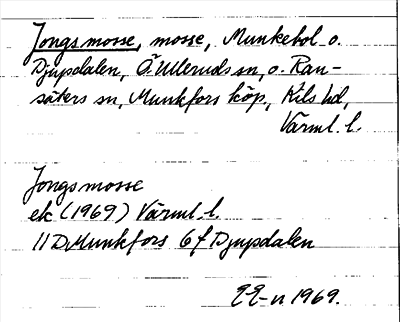 Jongsmosse, mosse, Munkebol o.
Djupdalen, Ö. Ulleruds sn, o. Ran-
säters sn, Munkfors köp, Kils hd,
Värml. l.
Jongsmosse
ek (1969) Värml. l.
11D Munkfors 6f Djupdalen
EE-n 1969.